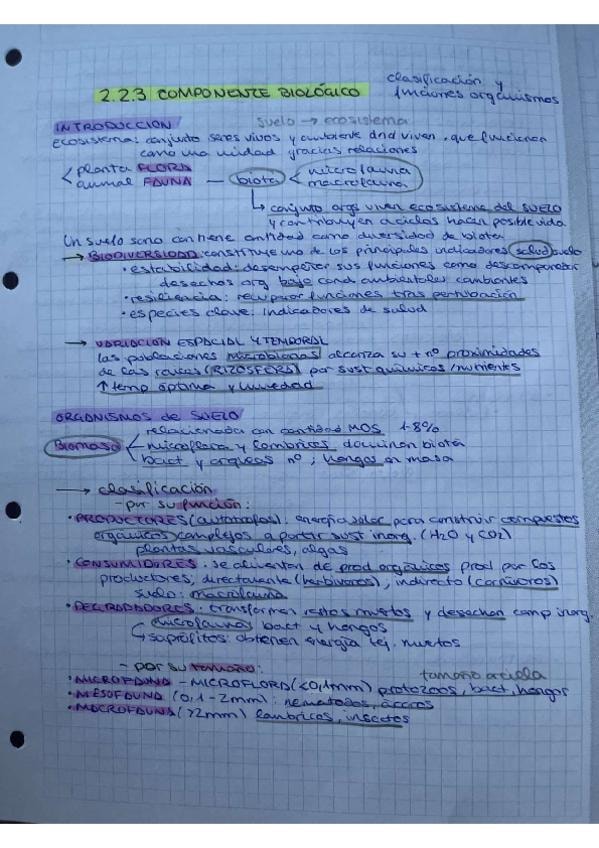 clasificación y
2.2.3 COMPONENTE BIOLÓGICO funciones organismos
INTRODUCCION suelo → ecosistema
ecosistema: conjunto seres vivos y ambiente dnd viven, que funcionan
como una unidad gracias relaciones
planta FLORA microfauna
animal FAUNA — biota macrofauna
↳ conjunto orgs viven ecosistema del SUELO
y contribuyen a ciclos hacen posible vida
Un suelo sano contiene cantidad como diversidad de biota
→ BIODIVERSIDAD: constituye uno de los principales indicadores salud suelo
• estabilidad: desempeñar sus funciones como descomponedor
desechos org bajo cond ambientales cambiantes
• resiliencia: recuperar funciones tras perturbación
• especies clave: Indicadores de salud
→ VARIACION ESPACIAL Y TEMPORAL
las poblaciones microbianas alcanza su + nº proximidades
de las raices (RIZOSFERA) por sust químicas/nutrientes
↑ temp óptima y humedad
ORGANISMOS de SUELO
relacionada con cantidad MOS 1-8%
Biomasa microflora y lombrices dominan biota
bact y arqueas nº; hongos en masa
→ clasificación
- por su función:
• PRODUCTORES (autótrofos): energía solar para construir compuestos
orgánicos complejos a partir sust inorg. (H2O y CO2)
plantas vasculares, algas
• CONSUMIDORES: se alimentan de prod orgánicos prod por los
productores, directamente (herbívoros), indirecto (carnívoros)
suelo: macrofauna
• DEGRADADORES: transforman restos muertos y desechan comp inorg.
microfauna bact y hongos
↳ saprófitos: obtienen energía tej. muertos
- por su tamaño: tamaño arcilla
• MICROFAUNA - MICROFLORA (<0,1mm) protozoos, bact, hongos
• MESOFAUNA (0,1-2mm): nematodos, ácaros
• MACROFAUNA (>2mm) lombrices, insectos